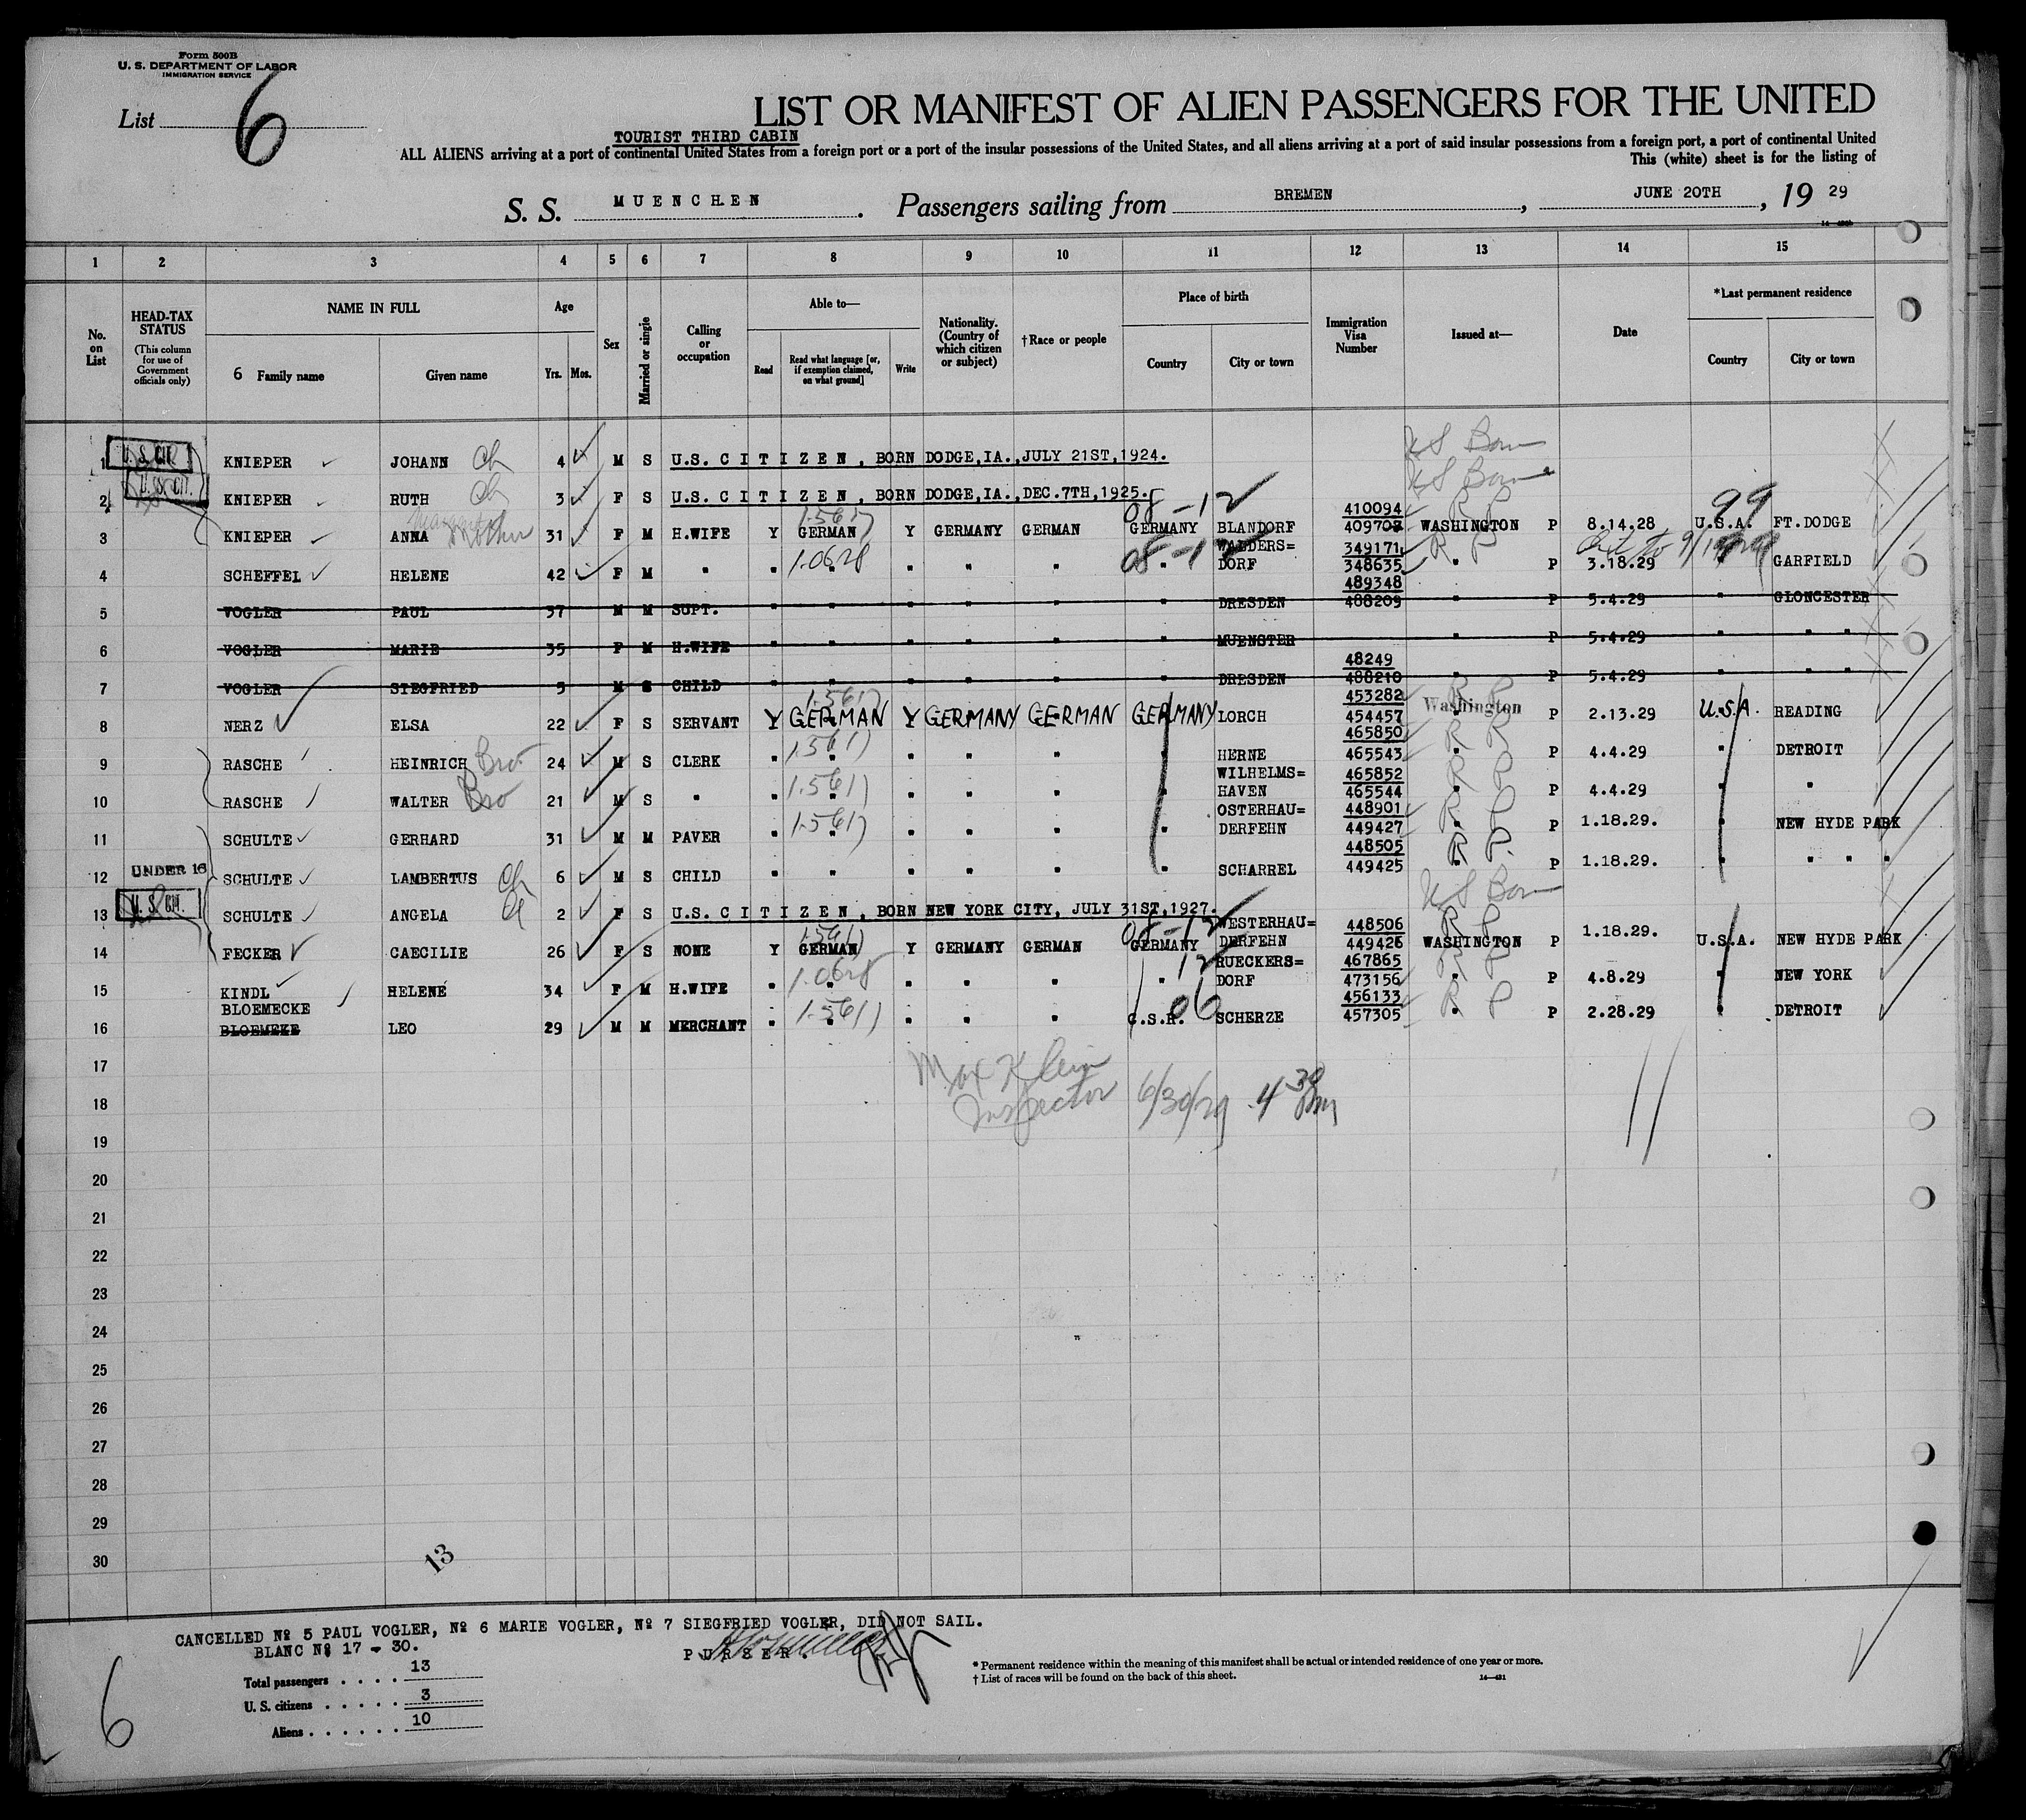 Form 500B
U. S. DEPARTMENT OF LABOR
IMMIGRATION SERVICE
List 6
LIST OR MANIFEST OF ALIEN PASSENGERS FOR THE UNITED
TOURIST THIRD CABIN
ALL ALIENS arriving at a port of continental United States from a foreign port or a port of the insular possessions of the United States, and all aliens arriving at a port of said insular possessions from a foreign port, a port of continental United
This (white) sheet is for the listing of
S. S. MUENCHEN. Passengers sailing from BREMEN, JUNE 20TH, 19 29
1 2 3 4 5 6 7 8 9 10 11 12 13 14 15
No. on List
HEAD-TAX STATUS
(This column for use of Government officials only)
NAME IN FULL
6 Family name
Given name
Age
Yrs. Mos.
Sex
Married or single
Calling or occupation
Able to—
Read
Read what language [or, if exemption claimed, on what ground]
Write
Nationality. (Country of which citizen or subject)
†Race or people
Place of birth
Country
City or town
Immigration Visa Number
Issued at—
Date
*Last permanent residence
Country
City or town
1 U. S. CIT. KNIEPER JOHANN Ch 4 M S U.S. CITIZEN, BORN DODGE,IA.,JULY 21ST,1924. US Born
2 U. S. CIT. KNIEPER RUTH Ch 3 F S U.S. CITIZEN, BORN DODGE,IA.,DEC.7TH,1925. US Born
08-12 410094 R P 99
3 KNIEPER ANNA Mother 31 F M H.WIFE Y GERMAN Y GERMANY GERMAN GERMANY BLANDORF 409708 WASHINGTON P 8.14.28 U.S.A. FT.DODGE
08-12 WALDERS= 349171 R P
4 SCHEFFEL HELENE 42 F M " " 1-0628 " " " " " DORF 348635 " P 3.18.29 " GARFIELD
489348
5 VOGLER PAUL 37 M M SUPT. " " " " " " DRESDEN 488209 " P 5.4.29 " GLONCESTER
6 VOGLER MARIE 35 F M H.WIFE " " " " " " MUENSTER " P 5.4.29 " " "
48249
7 VOGLER SIEGFRIED 5 M S CHILD " " " " " " DRESDEN 488210 " P 5.4.29 " " "
453282 R P
8 NERZ ELSA 22 F S SERVANT Y GERMAN Y GERMANY GERMAN GERMANY LORCH 454457 Washington P 2.13.29 U.S.A. READING
465850 R P
9 RASCHE HEINRICH Bro 24 M S CLERK " " " " " " HERNE 465543 " P 4.4.29 " DETROIT
WILHELMS= 465852 R P
10 RASCHE WALTER Bro 21 M S " " " " " " " HAVEN 465544 " P 4.4.29 " "
OSTERHAU= 448901 R P
11 SCHULTE GERHARD 31 M M PAVER " " " " " " DERFEHN 449427 " P 1.18.29. " NEW HYDE PARK
448505 R P
12 UNDER 16 SCHULTE LAMBERTUS Ch 6 M S CHILD " " " " " " SCHARREL 449425 " P 1.18.29. " " " "
13 U. S. CIT. SCHULTE ANGELA Ch 2 F S U.S. CITIZEN, BORN NEW YORK CITY, JULY 31ST,1927. US Born
08-12 WESTERHAU= 448506 R P
14 FECKER CAECILIE 26 F S NONE Y GERMAN Y GERMANY GERMAN GERMANY DERFEHN 449426 WASHINGTON P 1.18.29. U.S.A. NEW HYDE PARK
12 RUECKERS= 467865 R P
15 KINDL HELENE 34 F M H.WIFE " 1-0628 " " " " DORF 473156 " P 4.8.29 " NEW YORK
BLOEMECKE 06 456133 R P
16 BLOEMEKE LEO 29 M M MERCHANT " " " " " C.S.R. SCHERZE 457305 " P 2.28.29 " DETROIT
17
Max Klein
18
Inspector 6/30/29 4 30 pm
19
20
21
22
23
24
25
26
27
28
29
30
13
CANCELLED № 5 PAUL VOGLER, № 6 MARIE VOGLER, № 7 SIEGFRIED VOGLER, DID NOT SAIL.
BLANC № 17 - 30.
PURSER.
Total passengers . . . . 13
U. S. citizens . . . . . 3
Aliens . . . . . . 10
* Permanent residence within the meaning of this manifest shall be actual or intended residence of one year or more.
† List of races will be found on the back of this sheet.
14—431
6